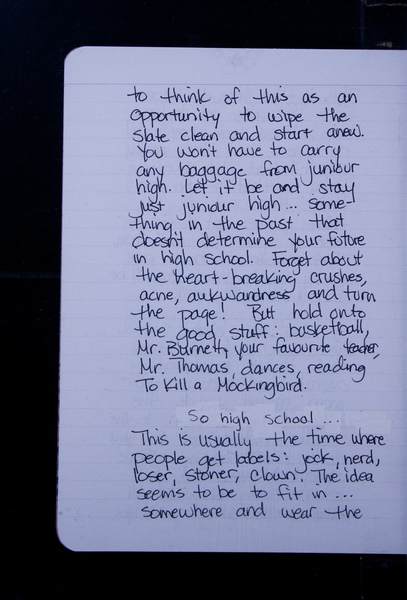 to think of this as an
opportunity to wipe the
slate clean and start anew.
You won't have to carry
any baggage from juniour
high. Let it be and stay
just juniour high... some-
thing in the past that
doesn't determine your future
in high school. Forget about
the heart-breaking crushes,
acne, aukwardness and turn
the page! But hold onto
the good stuff: basketball,
Mr. Burnett, your favourite teacher,
Mr. Thomas, dances, reading
To Kill a Mockingbird.
So high school ...
This is usually the time where
people get labels: jock, nerd,
loser, stoner, clown. The idea
seems to be to fit in ...
somewhere and wear the